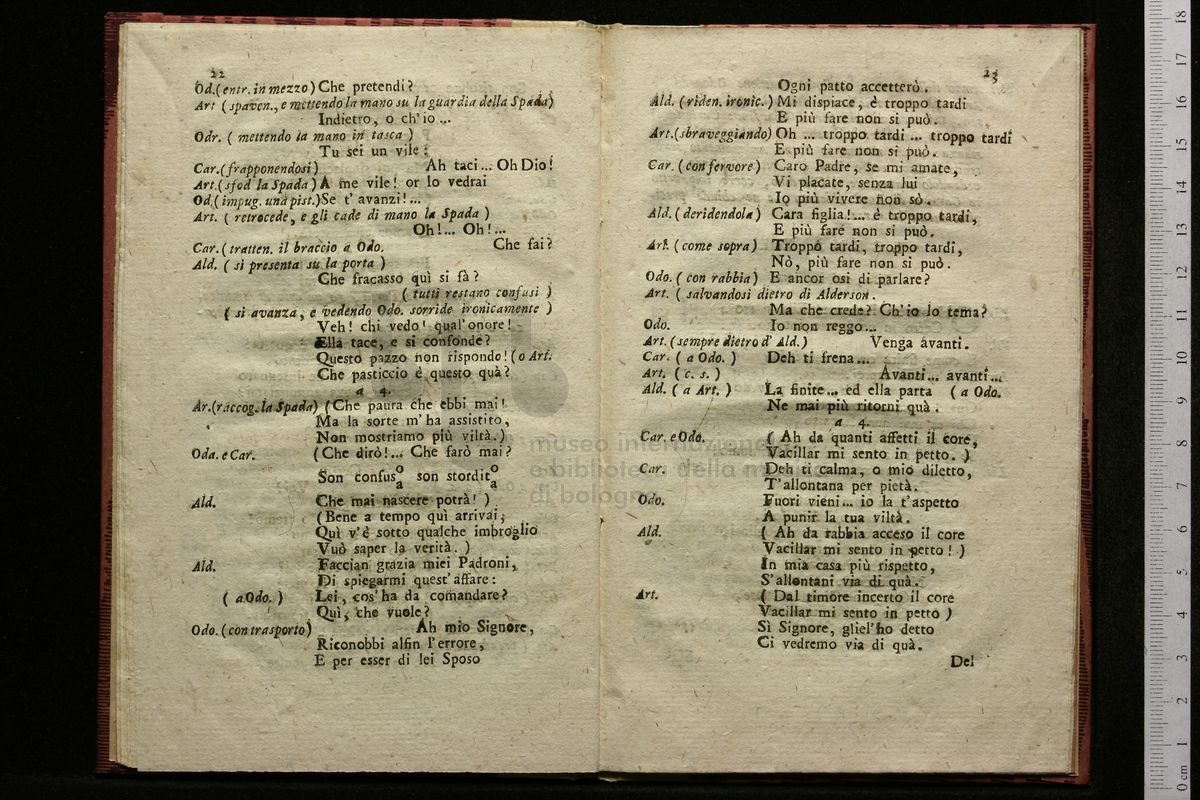 22
Od.(entr. in mezzo) Che pretendi?
Art (spaven., e mettendo la mano su la guardia della Spada)
Indietro, o ch'io ...
Odr. ( mettendo la mano in tasca )
Tu sei un vile:
Car.(frapponendosi) Ah taci... Oh Dio!
Art.(sfod la Spada) A me vile! or lo vedrai
Od.(impug. una pist.) Se t' avanzi!...
Art. ( retrocede, e gli cade di mano la Spada )
Oh!... Oh!...
Car.(tratten. il braccio a Odo. Che fai?
Ald. ( si presenta su la porta )
Che fracasso quì si fà?
( tutti restano confusi )
( si avanza, e vedendo Odo. sorride ironicamente )
Veh! chi vedo! qual'onore!
Ella tace, e si confonde?
Questo pazzo non rispondo! (o Art.
Che pasticcio è questo quà?
a 4.
Ar.(raccog. la Spada) (Che paura che ebbi mai!
Ma la sorte m'ha assistito,
Non mostriamo più viltà.)
Oda. e Car. (Che dirò!... Che farò mai?
Son confus o/a son stordit o/a
Ald. Che mai nascere potrà! )
(Bene a tempo quì arrivai,
Quì v'è sotto qualche imbroglio
Vuò saper la verità. )
Ald. Faccian grazia miei Padroni,
Di spiegarmi quest'affare:
( a Odo. ) Lei, cos'ha da comandare?
Quì, che vuole?
Odo. (con trasporto) Ah mio Signore,
Riconobbi alfin l'errore,
E per esser di lei Sposo
23
Ogni patto accetterò.
Ald. (riden. ironic.) Mi dispiace, è troppo tardi
E più fare non si può.
Art.(sbraveggiando) Oh ... troppo tardi ... troppo tardi
E più fare non si può.
Car. (con fervore) Caro Padre, se mi amate,
Vi placate, senza lui
Io più vivere non sò.
Ald. (deridendola) Cara figlia!... è troppo tardi,
E più fare non si può.
Art. (come sopra) Troppo tardi, troppo tardi,
Nò, più fare non si può.
Odo. ( con rabbia) E ancor osi di parlare?
Art. ( salvandosi dietro di Alderson.
Ma che crede? Ch'io lo tema?
Odo. Io non reggo...
Art. (sempre dietro d' Ald.) Venga avanti.
Car. ( a Odo. ) Deh ti frena...
Art. ( c. s. ) Avanti... avanti...
Ald. ( a Art. ) La finite... ed ella parta ( a Odo.
Ne mai più ritorni quà.
a 4.
Car. e Odo. ( Ah da quanti affetti il core,
Vacillar mi sento in petto. )
Car. Deh ti calma, o mio diletto,
T'allontana per pietà.
Odo. Fuori vieni... io la t'aspetto
A punir la tua viltà.
Ald. ( Ah da rabbia acceso il core
Vacillar mi sento in petto ! )
In mia casa più rispetto,
S'allontani via di quà.
Art. ( Dal timore incerto il core
Vacillar mi sento in petto )
Sì Signore, gliel'ho detto
Ci vedremo via di quà.
Del